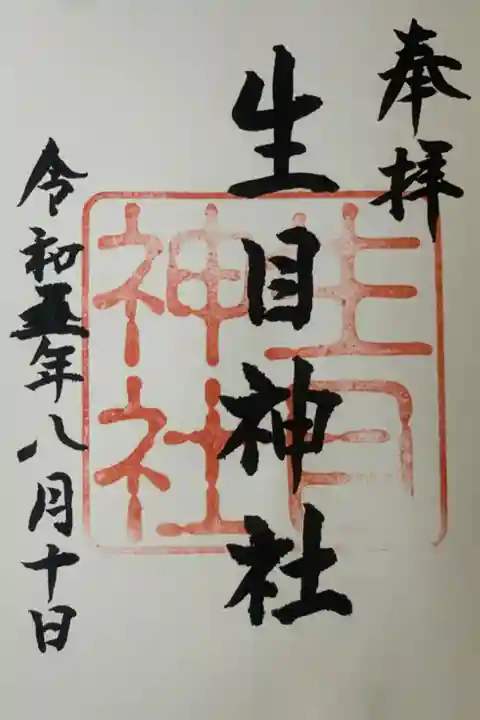 奉拝
生目神社
令和五年八月十日
生目
神社